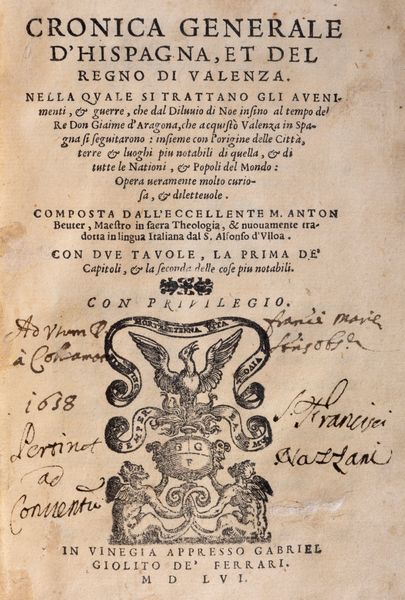 CRONICA GENERALE
D'HISPAGNA, ET DEL
REGNO DI VALENZA.
NELLA QVALE SI TRATTANO GLI AVENI-
menti, & guerre, che dal Diluuio di Noe insino al tempo del
Re Don Giaime d'Aragona, che acquistò Valenza in Spa-
gna si seguitarono: insieme con l'origine delle Città,
terre & luoghi piu notabili di quella, & di
tutte le Nationi, & Popoli del Mondo:
Opera ueramente molto curio-
sa, & diletteuole.
COMPOSTA DALL'ECCELLENTE M. ANTON
Beuter, Maestro in sacra Theologia, & nuouamente tra-
dotta in lingua Italiana dal S. Alfonso d'Vlloa.
CON DVE TAVOLE, LA PRIMA DE'
Capitoli, & la seconda delle cose piu notabili.
CON PRIVILEGIO.
Ad Vsum
à
1638
Pertinet
ad
Conuentũ
S. Francisci
Nazzani
SEMPER
G G
F
IN VINEGIA APPRESSO GABRIEL
GIOLITO DE' FERRARI.
M D LVI.